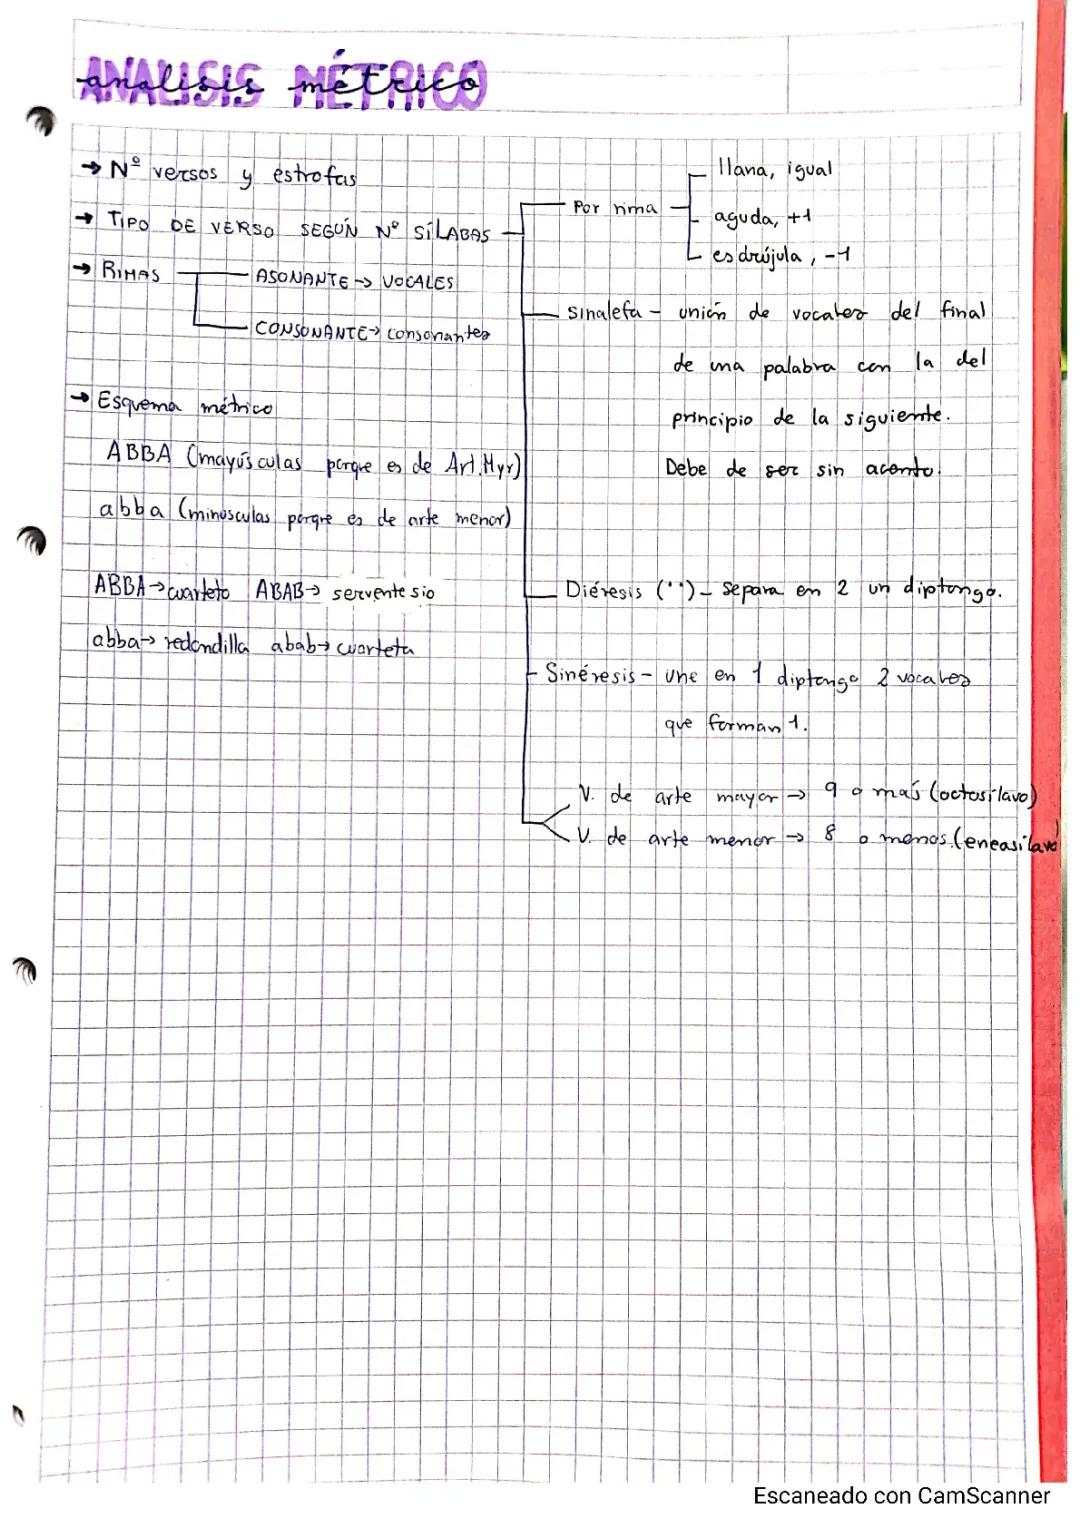 ANALISIS MÉTRICO
analisis métrico
→ Nº versos y estrofas
→ TIPO DE VERSO SEGÚN Nº SÍLABAS
→ RIMAS
ASONANTE → VOCALES
CONSONANTE → consonantes
→ Esquema métrico
ABBA (mayúsculas porque es de Art. Myr)
abba (minúsculas porque es de arte menor)
ABBA → cuarteto ABAB → serventesio
abba → redondilla abab → cuarteta
Por rima
llana, igual
aguda, +1
esdrújula, -1
sinalefa - unión de vocales del final
de una palabra con la del
principio de la siguiente.
Debe de ser sin acento.
Diéresis (¨) - Separa en 2 un diptongo.
Sinéresis - une en 1 diptongo 2 vocales
que forman 1.
V. de arte mayor → 9 o más (octosílavo)
V. de arte menor → 8 o menos (eneasílavo)
Escaneado con CamScanner